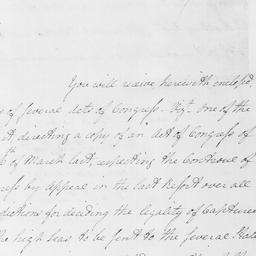 You will receive herewith enclosed,
of several Acts of Congress. Viz. One of the
directing a copy of an Act of Congress of
6th of March last, respecting the Controul of
ress by Appeal in the last Resort over all
dictions for deciding the legality of Captures
the high Seas to be sent to the several State